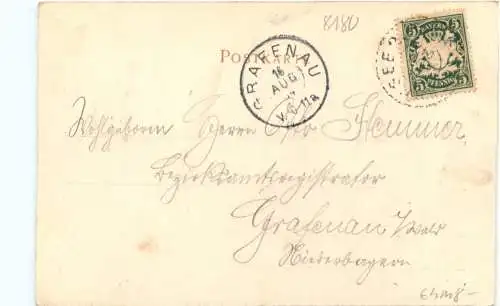 8180
POSTKARTE
GRAFENAU
16
AUG
V. 6-11 A
BAYERN
5 5
PFENNIG
Wohlgeboren Herrn Otto Hemmer
Bezirksamtsregistrator
Grafenau / Wald
Niederbayern